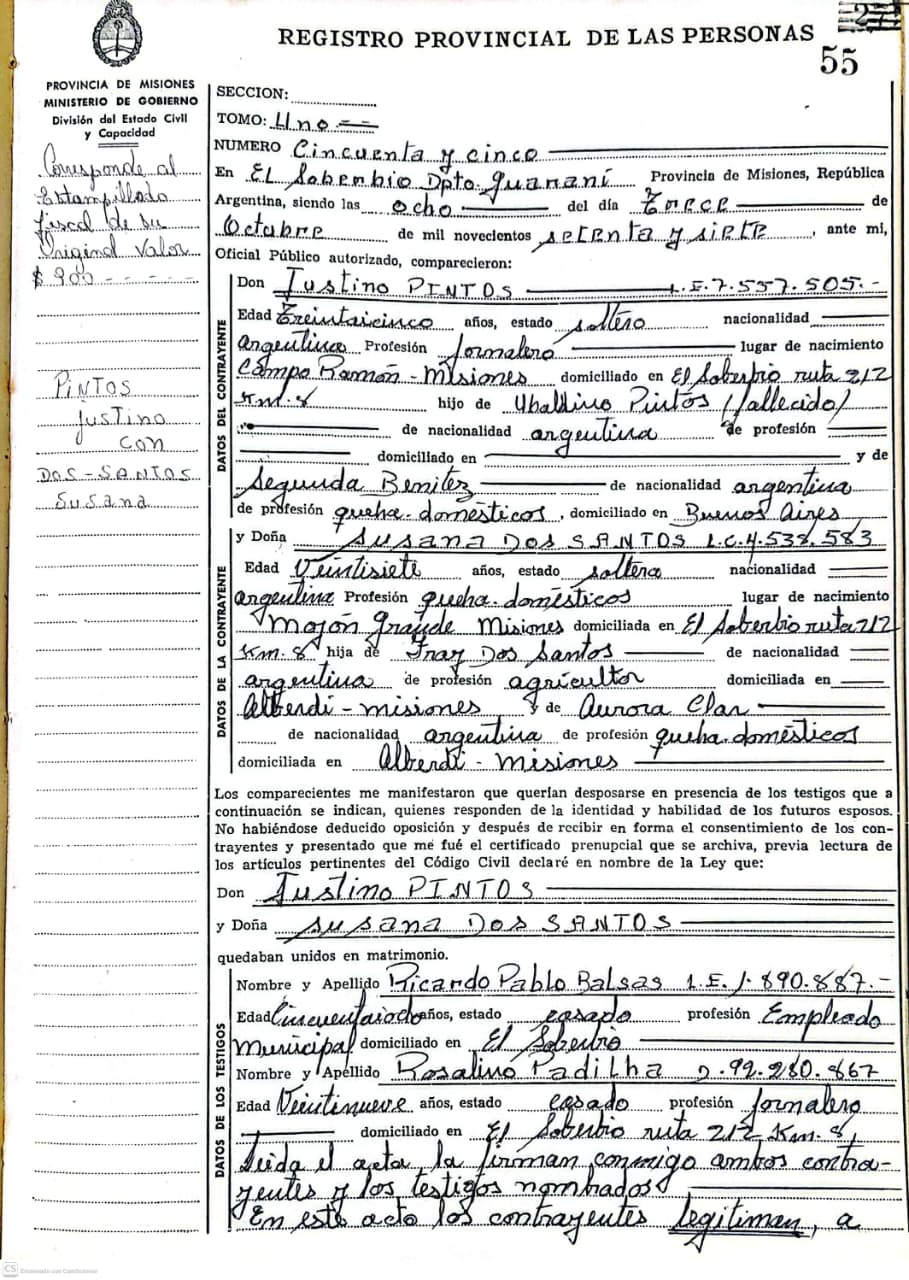 27
REGISTRO PROVINCIAL DE LAS PERSONAS
55
PROVINCIA DE MISIONES
MINISTERIO DE GOBIERNO
División del Estado Civil
y Capacidad
Corresponde al
Estampillado
fiscal de su
Original Valor
$ 900 - - - - -
PINTOS
Justino
CON
DOS-SANTOS
Susana
SECCION:
TOMO: Uno --
NUMERO Cincuenta y cinco
En El Soberbio Dpto. Guaraní Provincia de Misiones, República
Argentina, siendo las ocho del día Trece de
Octubre de mil novecientos setenta y siete, ante mi,
Oficial Público autorizado, comparecieron:
DATOS DEL CONTRAYENTE
Don Justino PINTOS L.E. 7.557.505.-
Edad Treintaicinco años, estado soltero nacionalidad
argentina Profesión jornalero lugar de nacimiento
Campo Ramón - Misiones domiciliado en El Soberbio ruta 212
Km. 8 hijo de Ubaldino Pintos (fallecido)
de nacionalidad argentina de profesión
domiciliado en y de
Segunda Benitez de nacionalidad argentina
de profesión queha. domésticos, domiciliado en Buenos Aires
DATOS DE LA CONTRAYENTE
y Doña Susana DOS SANTOS L.C. 4.538.583
Edad Veintisiete años, estado soltera nacionalidad
argentina Profesión queha. domésticos lugar de nacimiento
Mojón Grande Misiones domiciliada en El Soberbio ruta 212
Km. 8 hija de Fray Dos Santos de nacionalidad
argentina de profesión agricultor domiciliado en
Alberdi - misiones y de Aurora Clar
de nacionalidad argentina de profesión queha. domésticos
domiciliada en Alberdi - Misiones
Los comparecientes me manifestaron que querían desposarse en presencia de los testigos que a
continuación se indican, quienes responden de la identidad y habilidad de los futuros esposos.
No habiéndose deducido oposición y después de recibir en forma el consentimiento de los con-
trayentes y presentado que me fué el certificado prenupcial que se archiva, previa lectura de
los artículos pertinentes del Código Civil declaré en nombre de la Ley que:
Don Justino PINTOS
y Doña Susana DOS SANTOS
quedaban unidos en matrimonio.
DATOS DE LOS TESTIGOS
Nombre y Apellido Ricardo Pablo Balsas L.E. 1.890.887.-
Edad Cincuentaiocho años, estado casado profesión Empleado
Municipal domiciliado en El Soberbio
Nombre y Apellido Rosalino Padilha D. 92.280.867
Edad Veintinueve años, estado casado profesión jornalero
domiciliado en El Soberbio ruta 212 Km. 8,
Leida el acta, la firman conmigo ambos contra-
yentes y los testigos nombrados
En este acto los contrayentes legitiman, a
CS Escaneado con CamScanner